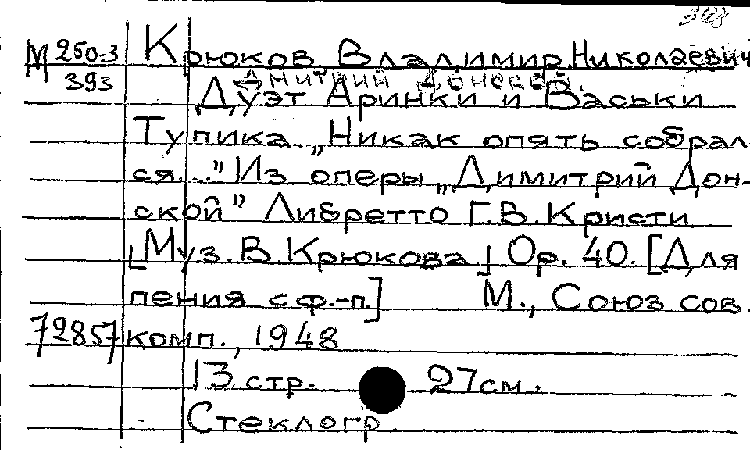 М 250-3
393
Крюков Владимир Николаевич
Дмитрий Донской.
Дуэт Аринки и Васьки
Тупика „Никак опять собрал-
ся..." Из оперы „Димитрий Дон-
ской" Либретто Г.В. Кристи
[Муз. В. Крюкова.] Ор. 40. [Для
пения с ф.-п.] М., Союз сов.
72857 комп., 1948
13 стр. 27 см.
Стеклогр.